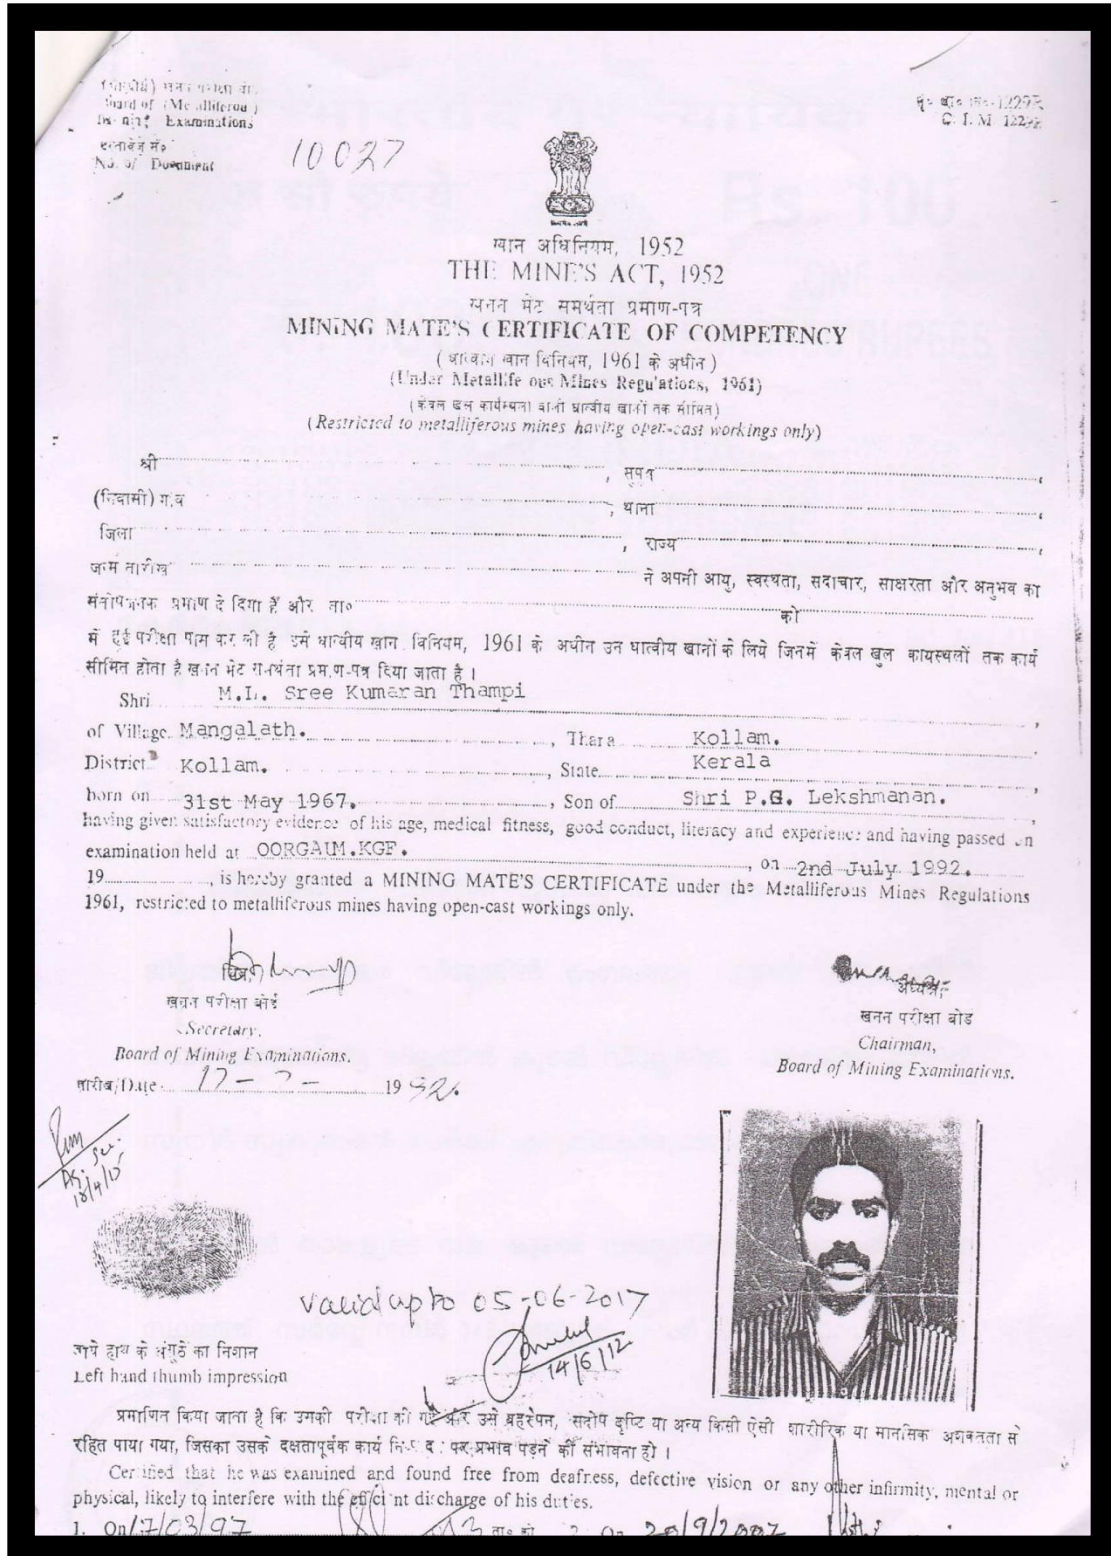 Board of (Metalliferous)
Examinations
No. of Document
10027
C. I. M 1229
खान अधिनियम, 1952
THE MINE'S ACT, 1952
खनन मेट समर्थता प्रमाण-पत्र
MINING MATE'S CERTIFICATE OF COMPETENCY
( धात्वीय खान विनियम, 1961 के अधीन )
(Under Metalliferous Mines Regulations, 1961)
(केवल खुले कार्यस्थलों वाली धात्वीय खानों तक सीमित)
(Restricted to metalliferous mines having open-cast workings only)
श्री , सुपुत्र ,
(निवासी) गांव , थाना ,
जिला , राज्य ,
जन्म तारीख ने अपनी आयु, स्वस्थता, सदाचार, साक्षरता और अनुभव का
संतोषजनक प्रमाण दे दिया है और ता० को
में हुई परीक्षा पास कर ली है उसे धात्वीय खान विनियम, 1961 के अधीन उन धात्वीय खानों के लिये जिनमें केवल खुल कायस्थलों तक कार्य
सीमित होता है खनन मेट समर्थता प्रमाण-पत्र दिया जाता है ।
Shri M.L. Sree Kumaran Thampi ,
of Village Mangalath. , Thara Kollam. ,
District Kollam. , State Kerala
born on 31st May 1967. , Son of Shri P.G. Lekshmanan. ,
having given satisfactory evidence of his age, medical fitness, good conduct, literacy and experience and having passed an
examination held at OORGAUM.KGF. , on 2nd July 1992.
19 , is hereby granted a MINING MATE'S CERTIFICATE under the Metalliferous Mines Regulations
1961, restricted to metalliferous mines having open-cast workings only.
खनन परीक्षा बोर्ड
Secretary,
Board of Mining Examinations.
अध्यक्ष,
खनन परीक्षा बोर्ड
Chairman,
Board of Mining Examinations.
तारीख/Date 17 - 7 - 1992.
18/4/15
valid upto 05-06-2017
14/6/12
बायें हाथ के अंगूठे का निशान
Left hand thumb impression
प्रमाणित किया जाता है कि उसकी परीक्षा की गई और उसे बहरेपन, सदोष दृष्टि या अन्य किसी ऐसी शारीरिक या मानसिक अशक्तता से
रहित पाया गया, जिसका उसके दक्षतापूर्वक कार्य पर प्रभाव पड़ने की संभावना हो ।
Certified that he was examined and found free from deafness, defective vision or any other infirmity, mental or
physical, likely to interfere with the efficient discharge of his duties.
1. On 17/03/97 ता० को 2. On 20/9/2002